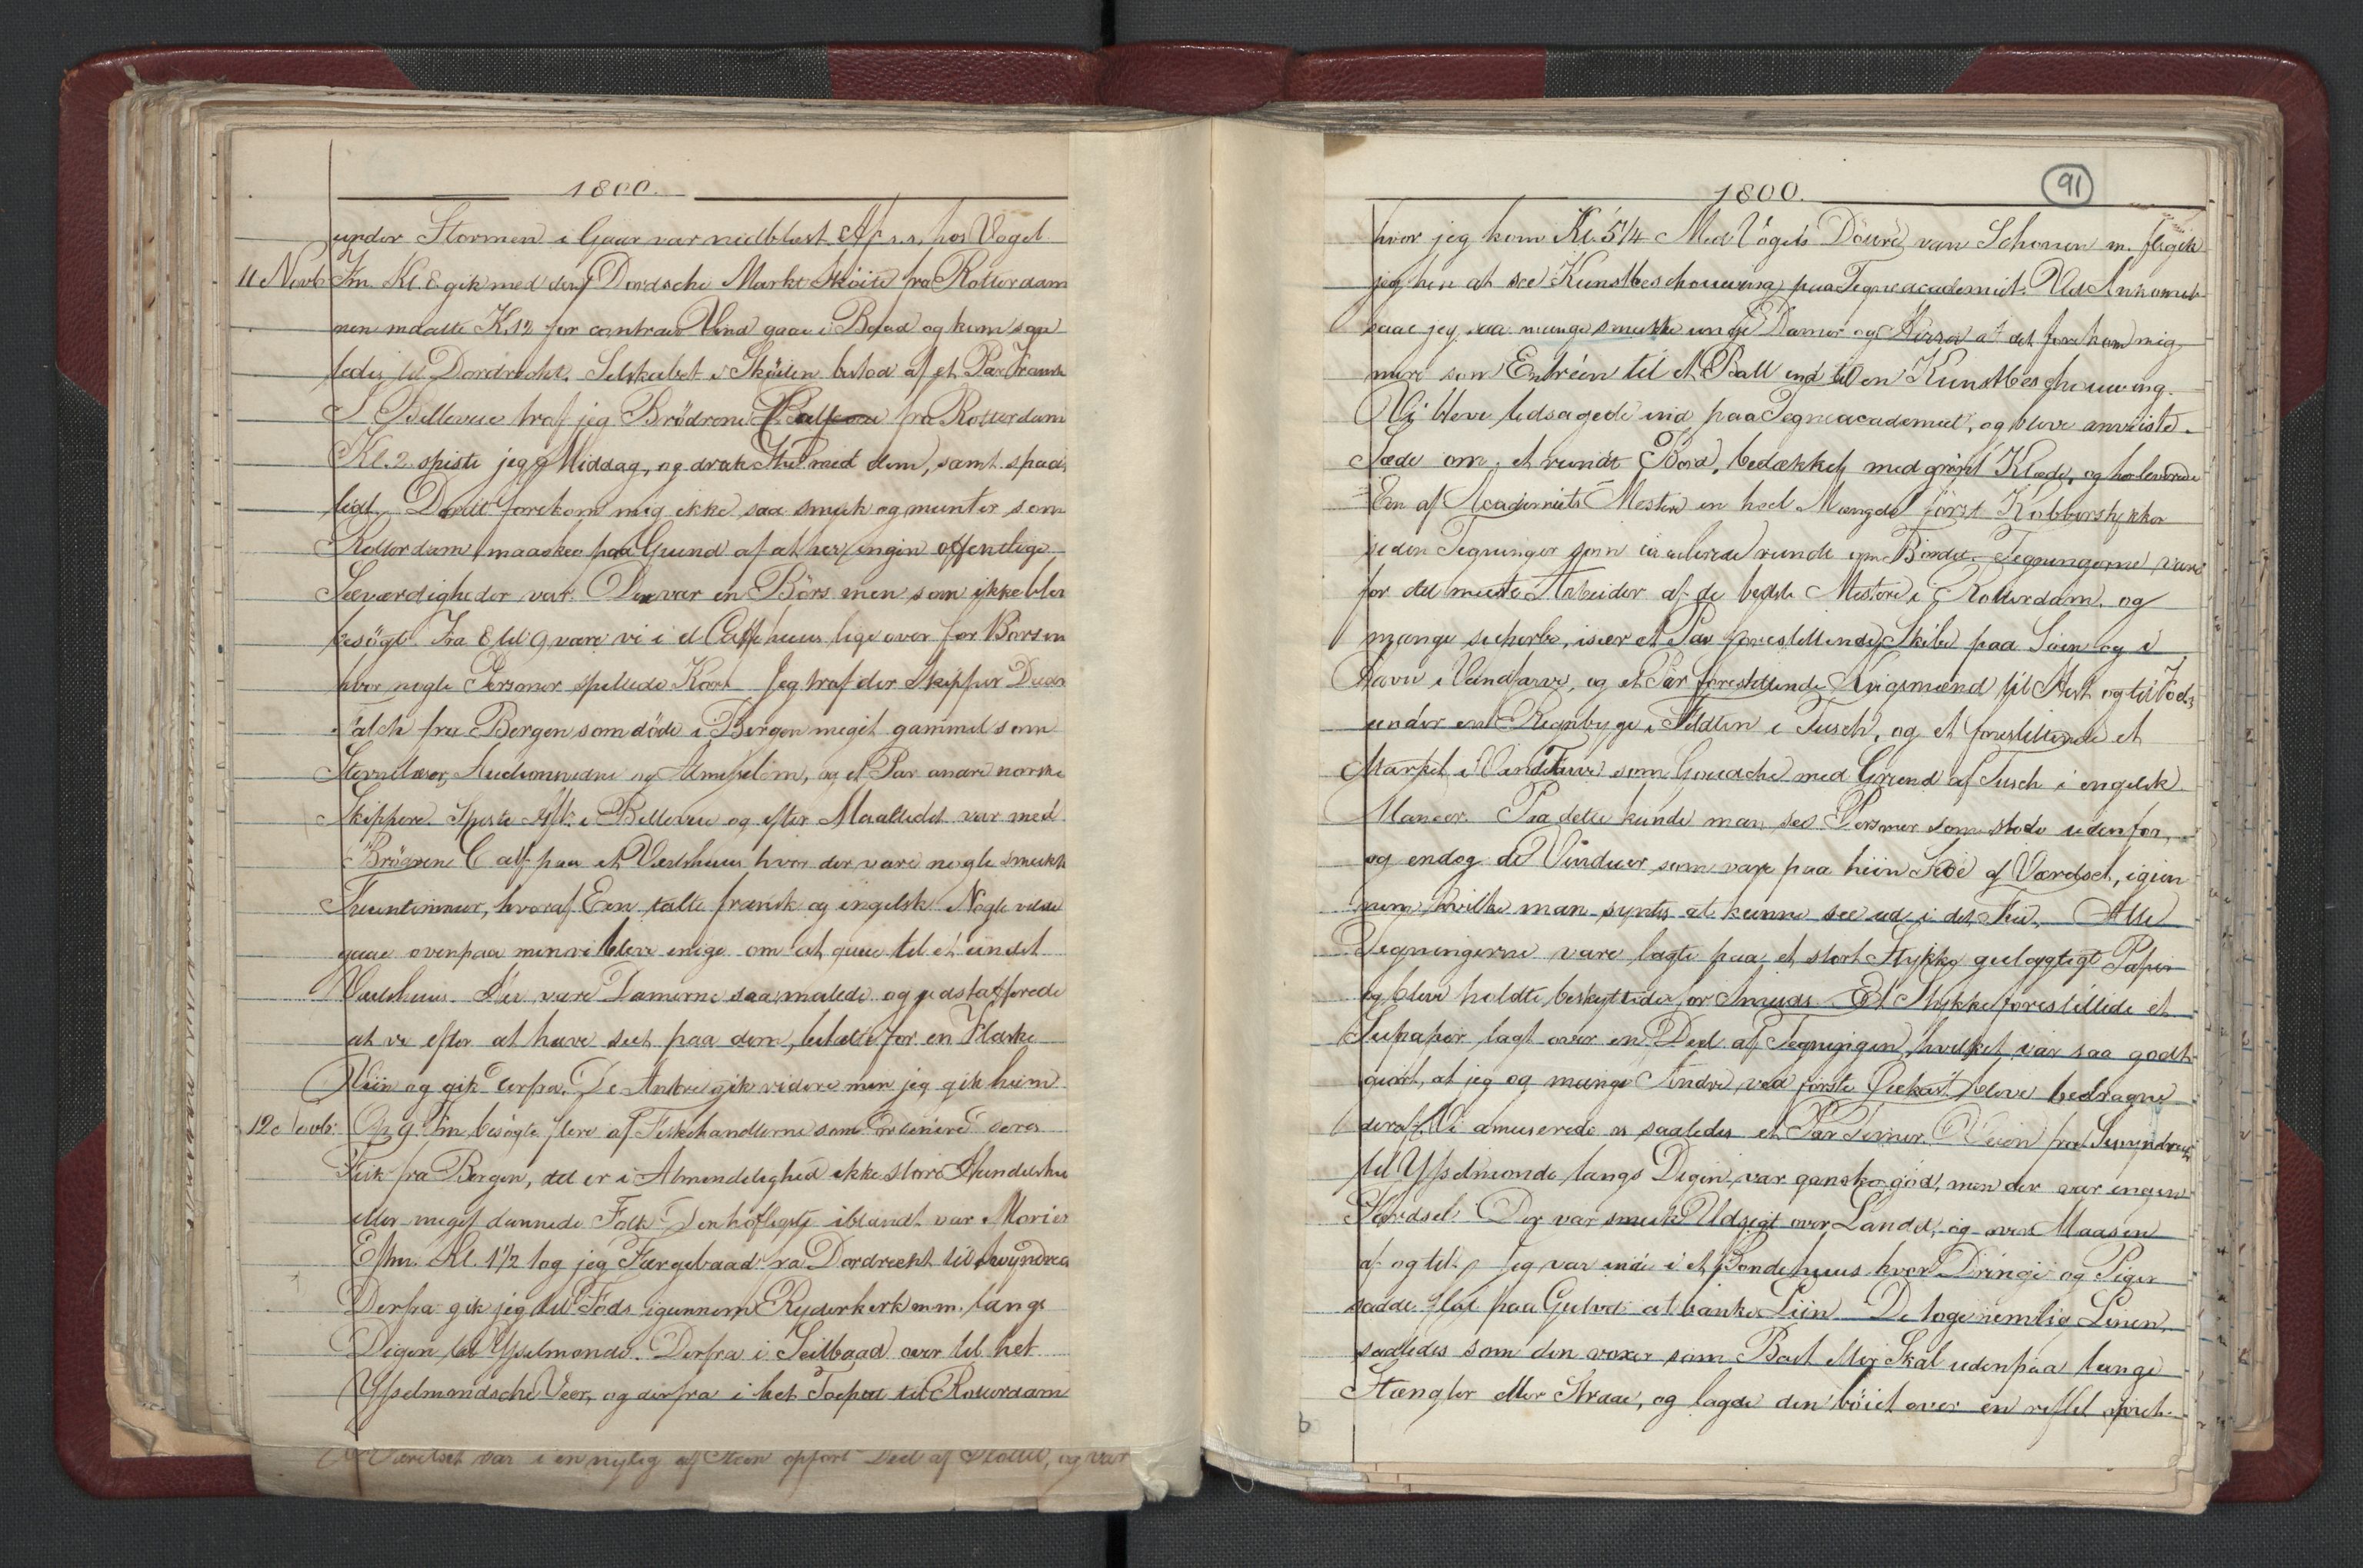 1800.
under Stormen i Gaar var nedblæst. Aft. s.s. hos Vogel
11 Novb Fm. Kl. 8 gik med den Dordsche Markt Sköite fra Rotterdam
men maatte K. 12 for contrair Vind gaae i Baad og kom saa
ledes til Dordrecht. Selskabet i Sköiten bestod af et Par Franske
I Bellevue traf jeg Brödrene Calf fra Rotterdam
Kl. 2 spiste jeg Middag, og drak The med dem, samt spad
seredt. Dordt forekom mig ikke saa smuk og munter som
Rotterdam, maaskee paa Grund af at her ingen offentlige
Seeværdigheder var. Der var en Börs men som ikke blev
besögt. Fra 8 til 9 vare vi i et Caffehuus lige over for Börsen
hvor nogle Personer spillede Kort. Jeg traf der Skipper
fra Bergen som döde i Bergen meget gammel som
og et Par andre norske
Skippere. Spiste Aft. i Bellevue og efter Maaltidet var med
Brödrene Calf paa et Vertshuus hvor der vare nogle smukke
Fruentimmer, hvoraf Een talte fransk og engelsk. Nogle vilde
gaae ovenpaa men vi bleve enige om at gaae til et andet
Vertshuus. Der vare Damerne saa malede og udstafferede
at vi efter at have seet paa dem, betalte for en Flaske
Viin og gik derfra. De Andre gik videre men jeg gik hiem
12 Novb. Og 9 Fm. besögte flere af Fiskehandlerne som deres
Fisk fra Bergen, det er i Almindelighed ikke store Handelshuse
eller meget dannede Folk. Den höfligste iblandt var
Eftm. Kl. 1½ tog jeg Færgebaad fra Dordrecht til Swyndrecht
Derfra gik jeg til Fods igiennem Ryderkerk m.m. langs
Digen til Ysselmonde. Derfra i Seilbaad over til het
Ysselmondsche Veer, og derfra i het Toepad til Rotterdam
Værelset var i en nylig af Steen opfört Deel af Slottet, og var
91
1800.
hvor jeg kom Kl. 5¼ Med Vogels van Schonen m. fl. gik
jeg hen at see Kunstbeschouwing paa Tegneacademiet. Ved Ankomsten
saae jeg saa mange smukke unge Damer og Herrer at det forekom mig
mere som Entréen til et Ball end til en Kunstbeschouwing.
Vi bleve ledsagede ind paa Tegneacademiet, og bleve anviiste
Sæde om et rundt Bord, bedækket med grönt Klæde, og her leverede
Een af Academiets Mestere en heel Mængde först Kobberstykker
siden Tegninger som circulerede rundt om Bordet. Tegningerne vare
for det meste Arbeider af de bedste Mestere i Rotterdam, og
mange superbe, især et Par forestillende Skibe paa Söen og i
Havn i Vandfarve, og et Par forestillende Krigsmænd til Hest og til Fods
under en Regnbyge i Felten i Tusch, og et forestillende et
Market i Vandfarve som Gouache med Grund af Tusch i engelsk
Maneer. Paa dette kunde man see Personer som stode udenfor,
og endog de Vinduer som vare paa hiin Side af Værelset, igien
nem hvilke man syntes at kunne see ud i det Frie. Alle
Tegningerne vare lagte paa et stort Stykke guulagtigt Papir
og bleve holdte beskyttede for Smuds. Et Stykke forestillede et
papir lagt over en Deel af Tegningen, hvilket var saa godt
giört, at jeg og mange Andre ved förste Öiekast bleve bedragne
deraf. Vi amuserede os saaledes et Par Timer. Veien fra Swyndrecht
til Ysselmonde langs Digen, var ganske god, men der var ingen
Færdsel. Der var smuk Udsigt over Landet, og over Maasen
af og til. Jeg var inde i et Bondehuus hvor Drenge og Piger
sadde flat paa Gulvet at banke Liin. De toge nemlig Linen,
saaledes som den voxer som Bast eller Skal udenpaa lange
Stængler eller Straae, og lagde den böiet over en reflet opret-